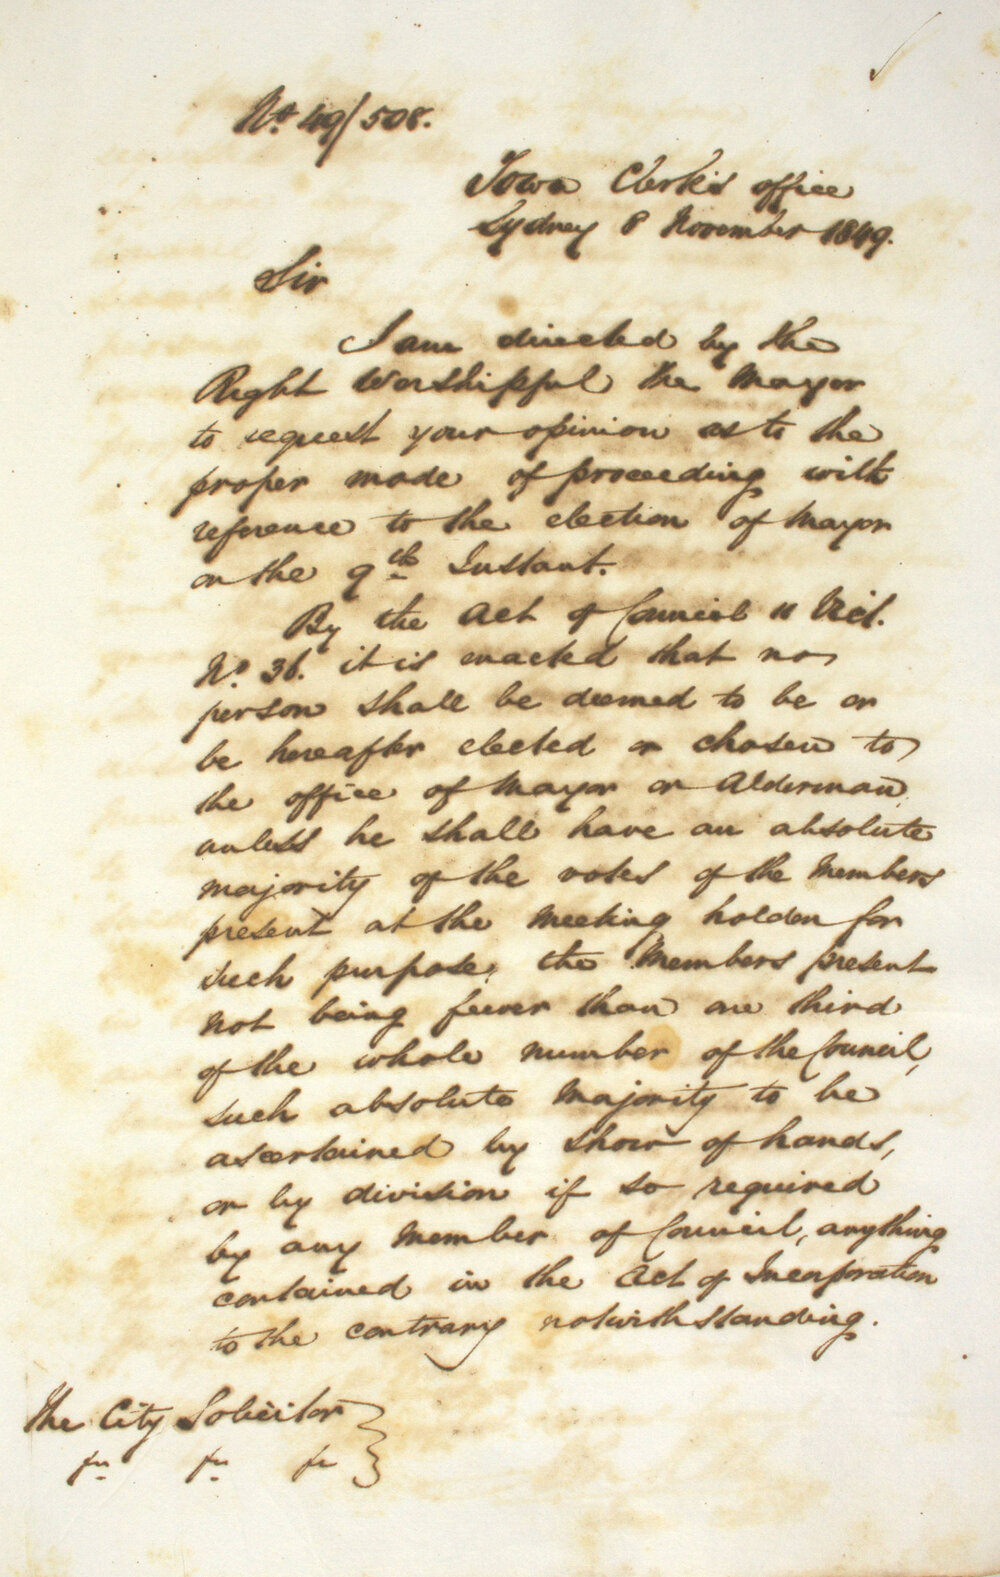 No. 49/508.
Town Clerk's office
Sydney 8 November 1849.
Sir
I am directed by the
Right Worshipful the Mayor
to request your opinion as to the
proper mode of proceeding with
reference to the election of Mayor
on the 9th Instant.
By the Act of Council 11 Vict.
No. 36. it is enacted that no
person shall be deemed to be or
be hereafter elected or chosen to
the office of Mayor or Alderman
unless he shall have an absolute
majority of the votes of the Members
present at the Meeting holden for
such purpose, the Members present
not being fewer than one third
of the whole number of the Council,
such absolute Majority to be
ascertained by show of hands,
or by division if so required
by any Member of Council, anything
contained in the Act of Incorporation
to the contrary notwithstanding.
The City Solicitor